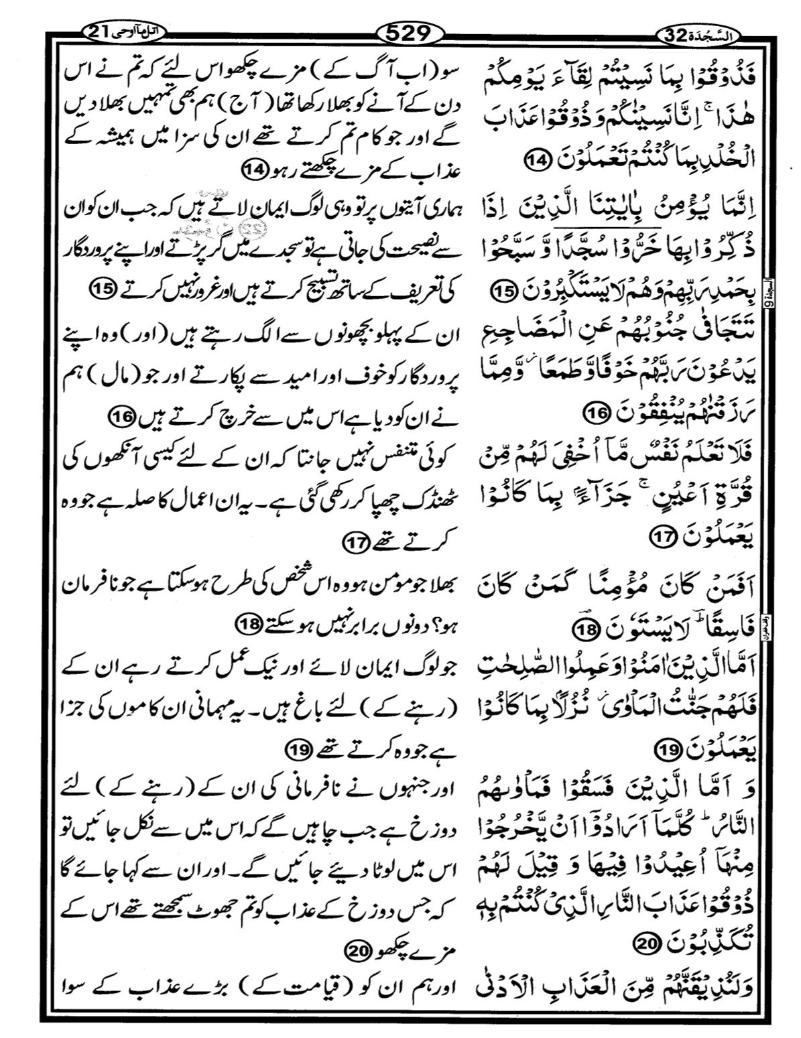 السَّجْدَة 32
529
اتل مآ اوحی 21
فَذُوْقُوْا بِمَا نَسِيْتُمْ لِقَآءَ يَوْمِكُمْ
هٰذَا ۚ اِنَّا نَسِيْنٰكُمْ وَ ذُوْقُوْا عَذَابَ
الْخُلْدِ بِمَا كُنْتُمْ تَعْمَلُوْنَ 14
اِنَّمَا يُؤْمِنُ بِاٰيٰتِنَا الَّذِيْنَ اِذَا
ذُكِّرُوْا بِهَا خَرُّوْا سُجَّدًا وَّ سَبَّحُوْا
بِحَمْدِ رَبِّهِمْ وَهُمْ لَا يَسْتَكْبِرُوْنَ 15
تَتَجَافٰى جُنُوْبُهُمْ عَنِ الْمَضَاجِعِ
يَدْعُوْنَ رَبَّهُمْ خَوْفًا وَّ طَمَعًا ۫ وَّ مِمَّا
رَزَقْنٰهُمْ يُنْفِقُوْنَ 16
فَلَا تَعْلَمُ نَفْسٌ مَّاۤ اُخْفِيَ لَهُمْ مِّنْ
قُرَّةِ اَعْيُنٍ ۚ جَزَآءًۢ بِمَا كَانُوْا
يَعْمَلُوْنَ 17
اَفَمَنْ كَانَ مُؤْمِنًا كَمَنْ كَانَ
فَاسِقًا ؕ لَا يَسْتَوٗنَ 18
اَمَّا الَّذِيْنَ اٰمَنُوْا وَ عَمِلُوا الصّٰلِحٰتِ
فَلَهُمْ جَنّٰتُ الْمَاْوٰى ۫ نُزُلًۢا بِمَا كَانُوْا
يَعْمَلُوْنَ 19
وَ اَمَّا الَّذِيْنَ فَسَقُوْا فَمَاْوٰىهُمُ
النَّارُ ؕ كُلَّمَاۤ اَرَادُوْۤا اَنْ يَّخْرُجُوْا
مِنْهَاۤ اُعِيْدُوْا فِيْهَا وَ قِيْلَ لَهُمْ
ذُوْقُوْا عَذَابَ النَّارِ الَّذِيْ كُنْتُمْ بِهٖ
تُكَذِّبُوْنَ 20
وَلَنُذِيْقَنَّهُمْ مِّنَ الْعَذَابِ الْاَدْنٰى
سو (اب آگ کے) مزے چکھو اس لئے کہ تم نے اس
دن کے آنے کو بھلا رکھا تھا (آج) ہم بھی تمہیں بھلا دیں
گے اور جو کام تم کرتے تھے ان کی سزا میں ہمیشہ کے
عذاب کے مزے چکھتے رہو 14
ہماری آیتوں پر تو وہی لوگ ایمان لاتے ہیں کہ جب ان کو ان
سے نصیحت کی جاتی ہے تو سجدے میں گر پڑتے اور اپنے پروردگار
کی تعریف کے ساتھ تسبیح کرتے ہیں اور غرور نہیں کرتے 15
ان کے پہلو بچھونوں سے الگ رہتے ہیں (اور) وہ اپنے
پروردگار کو خوف اور امید سے پکارتے اور جو (مال) ہم
نے ان کو دیا ہے اس میں سے خرچ کرتے ہیں 16
کوئی متنفس نہیں جانتا کہ ان کے لئے کیسی آنکھوں کی
ٹھنڈک چھپا کر رکھی گئی ہے۔ یہ ان اعمال کا صلہ ہے جو وہ
کرتے تھے 17
بھلا جو مومن ہو وہ اس شخص کی طرح ہو سکتا ہے جو نافرمان
ہو؟ دونوں برابر نہیں ہو سکتے 18
جو لوگ ایمان لائے اور نیک عمل کرتے رہے ان کے
(رہنے کے) لئے باغ ہیں۔ یہ مہمانی ان کاموں کی جزا
ہے جو وہ کرتے تھے 19
اور جنہوں نے نافرمانی کی ان کے (رہنے کے) لئے
دوزخ ہے جب چاہیں گے کہ اس میں سے نکل جائیں تو
اس میں لوٹا دیئے جائیں گے۔ اور ان سے کہا جائے گا
کہ جس دوزخ کے عذاب کو تم جھوٹ سمجھتے تھے اس کے
مزے چکھو 20
اور ہم ان کو (قیامت کے) بڑے عذاب کے سوا
السجدة 9
وقف غفران